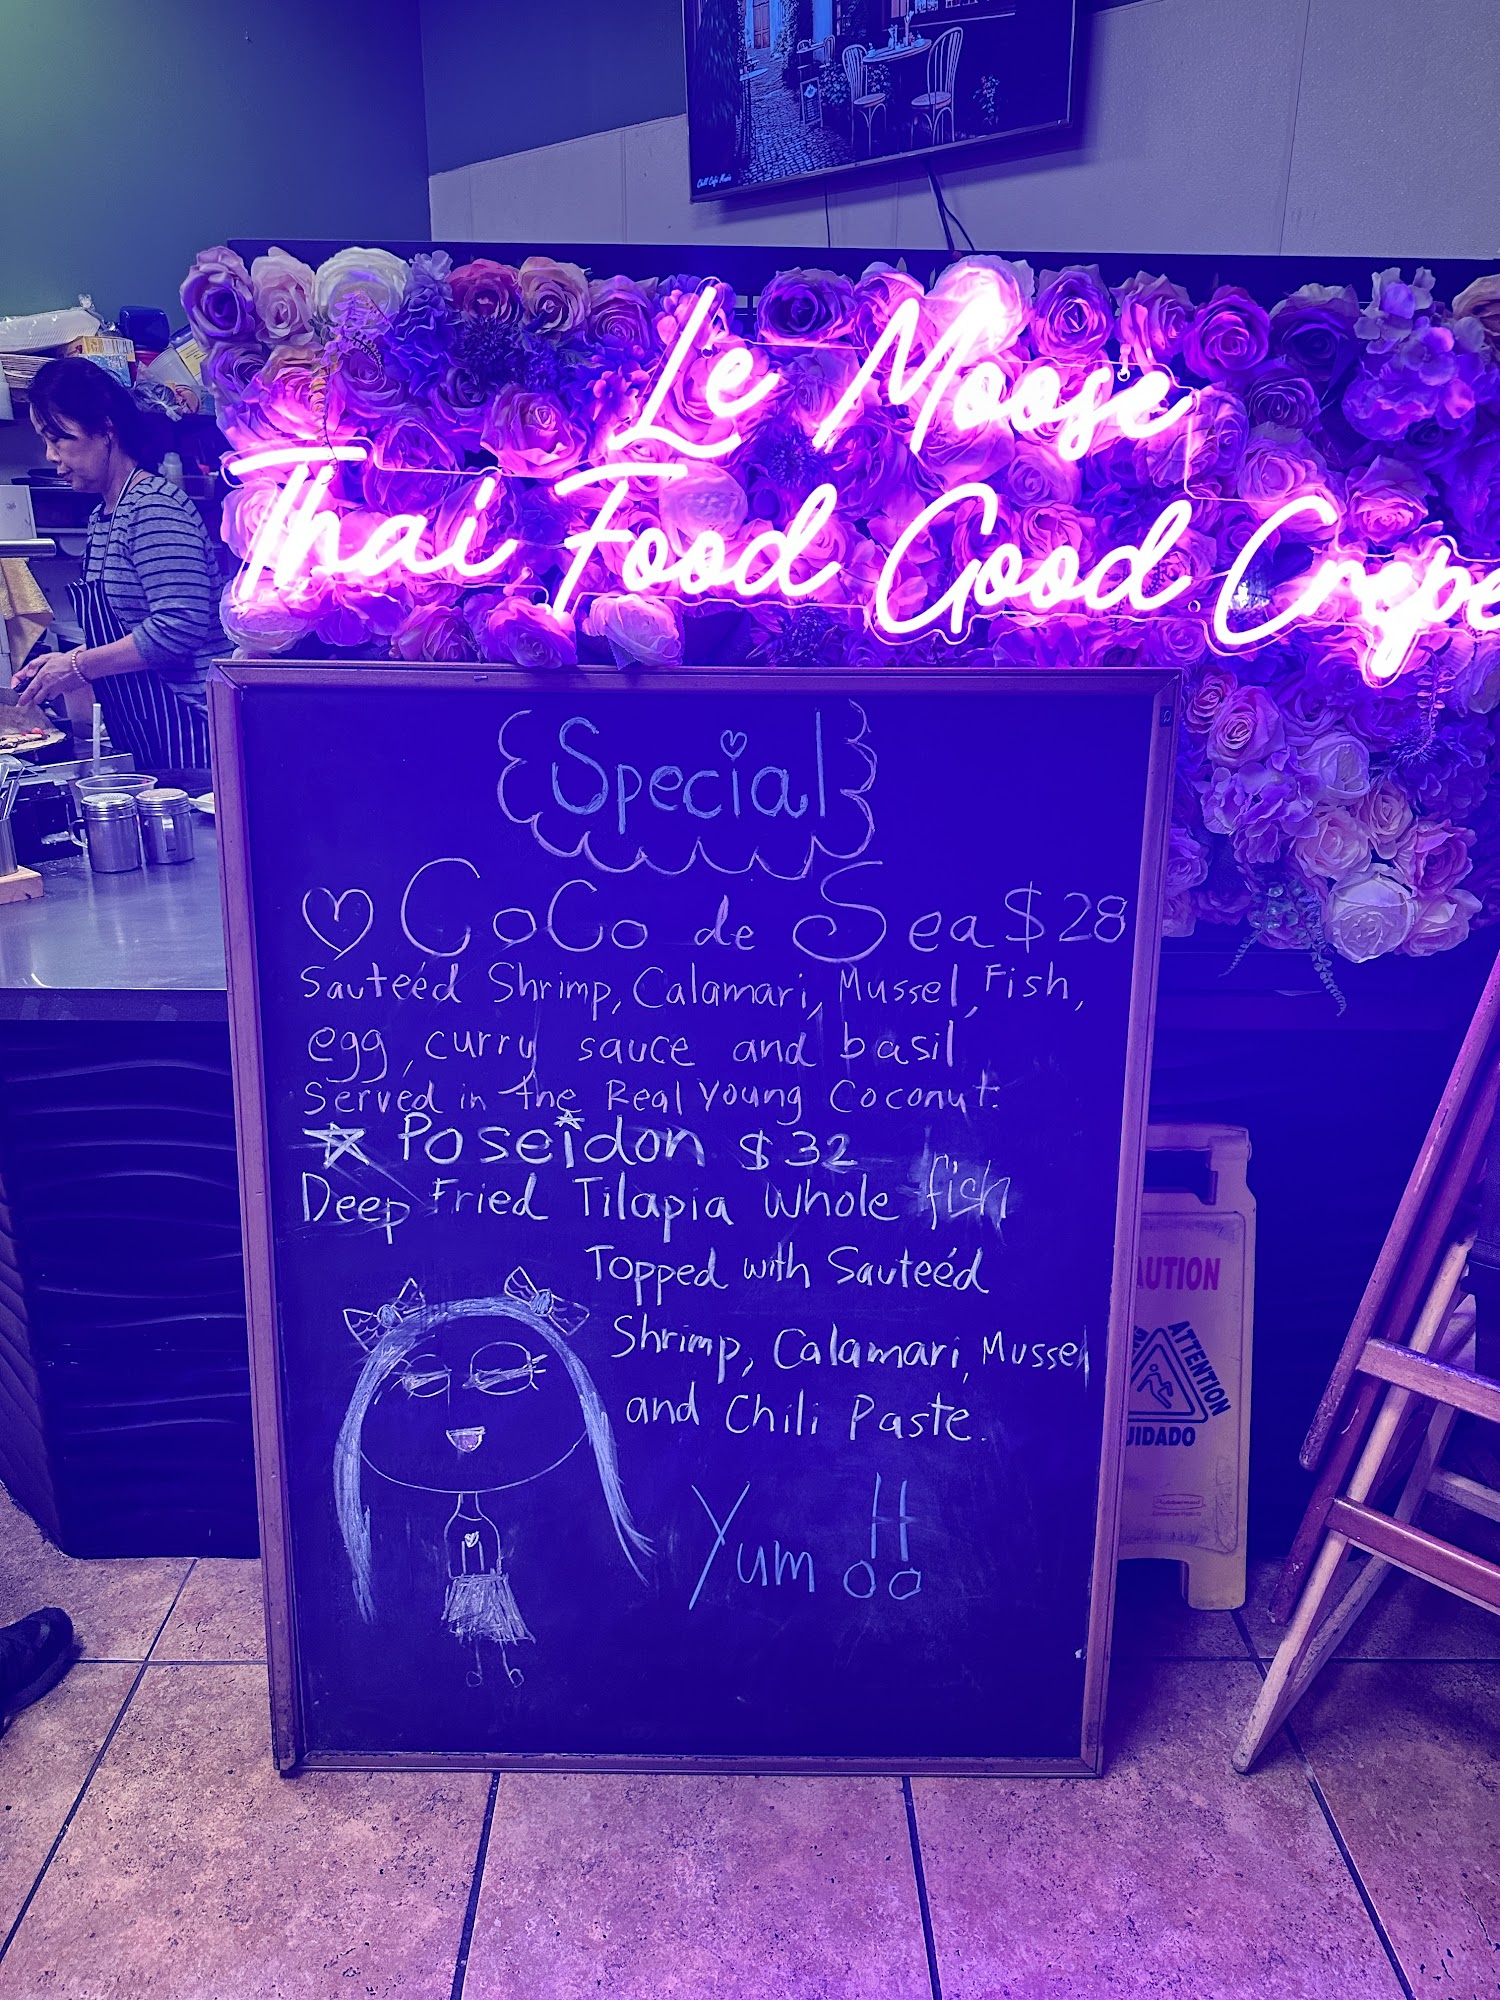 Chill Cafe Music
Le Moose
Thai Food Good Crepe
Special
CoCo de Sea $28
Sauteéd Shrimp, Calamari, Mussel, Fish,
egg, curry sauce and basil
Served in the Real Young Coconut.
Poseidon $32
Deep Fried Tilapia Whole fish
Topped with Sauteéd
Shrimp, Calamari, Mussel
and Chili Paste.
Yum!!
AUTION
ATTENTION
UIDADO
Rubbermaid